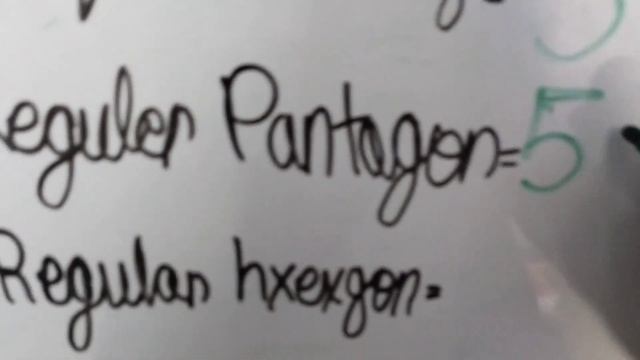 eguler Pantagon=5
Regular hxexgon=